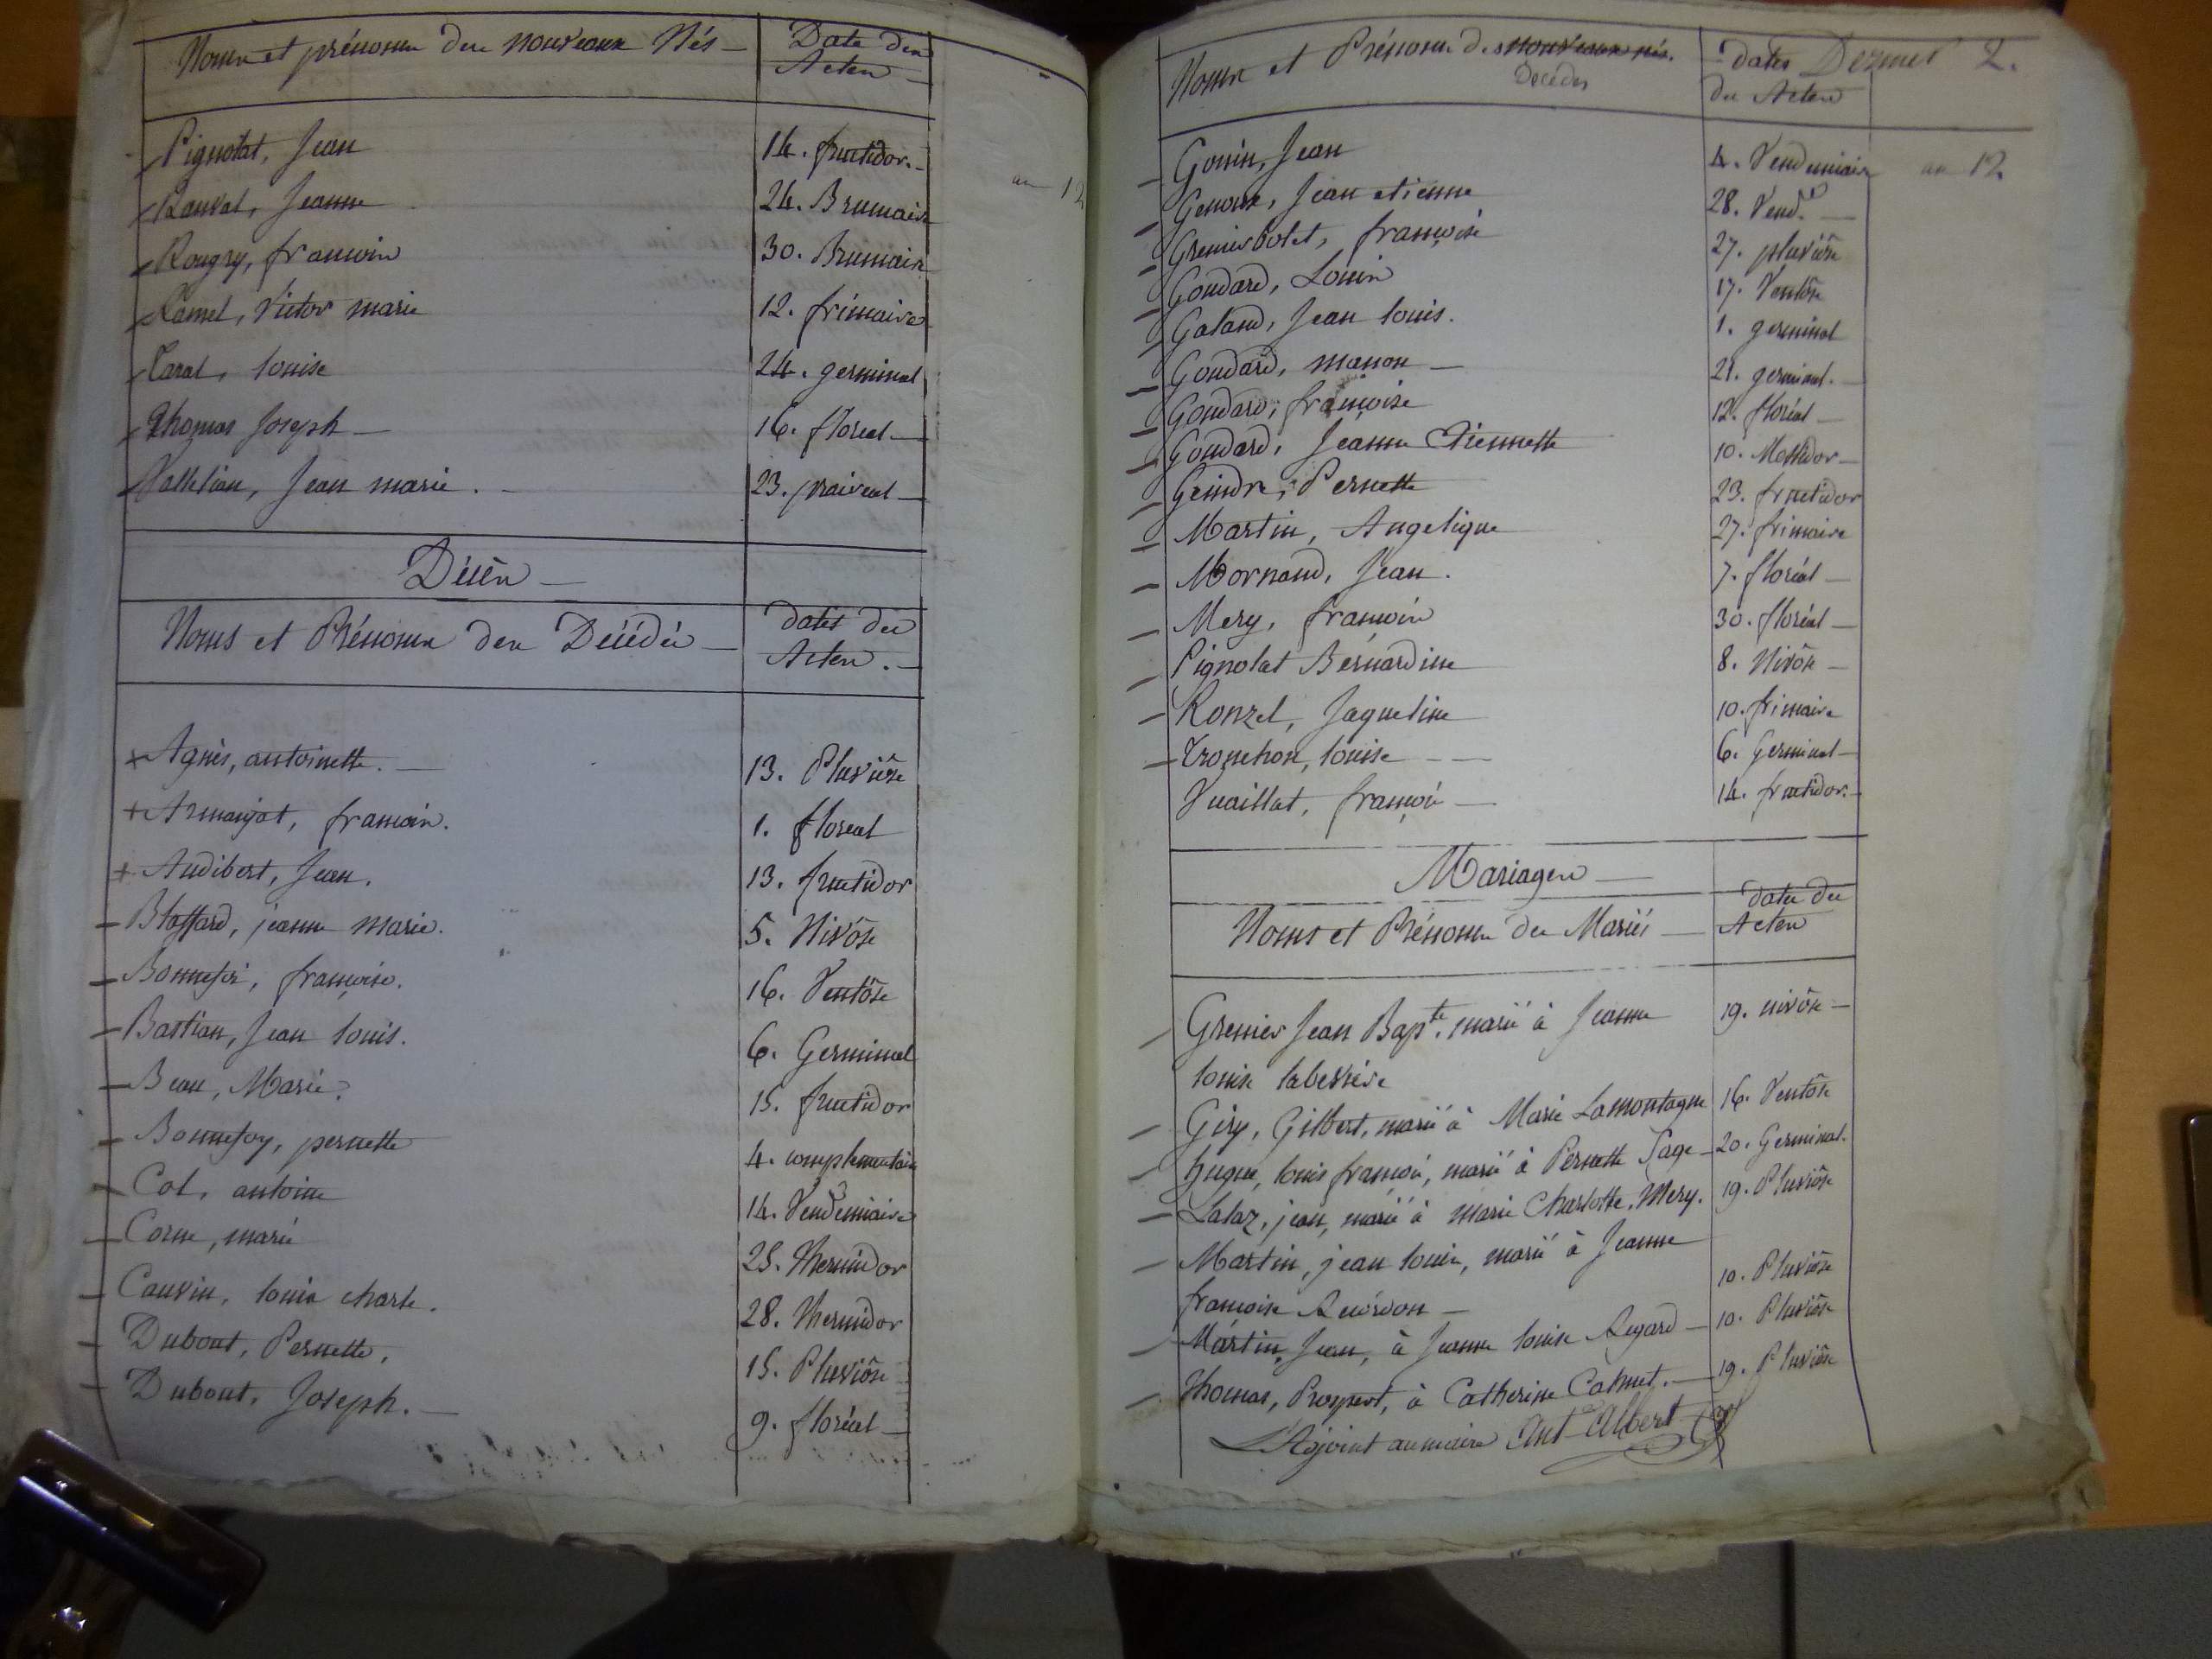 Noms et prénoms des nouveaux Nés — Date des
Actes —
Pignolat, Jean 14. fructidor. —
an 12
Ranvat, Jeanne 24. Brumaire
Rougny, françois 30. Brumaire
Ramel, Victor marie 12. frimaire
Tarat, louise 24. germinal
Thomas Joseph — 16. floreal —
Jean marie. — 23. prairéal —
Décès —
Noms et Prénoms des Décédés — dates des
Actes. —
+ Agnès, antoinette. — 13. Pluviôse
+ Armanjat, francois. 1. floreal
+ Audibert, Jean. 13. fructidor
— Blaffard, jeanne marie. 5. Nivôse
— Bonnefoi, françoise. 16. Ventôse
— Bastian, Jean louis. 6. Germinal
— Bean, Marie. 15. fructidor
— Bonnefoy, pernette 4. complementaire
— Col, antoine 14. Vendemiaire
— Corne, marie 25. thermidor
— Cauvin, louis charle. 28. thermidor
— Dubout, Pernette. 15. Pluviôse
— Dubout, Joseph. — 9. floréal —
Noms et Prénoms des nouveaux nés. dates 2.
Décédés des Actes
— Gonin, Jean 4. Vendemiaire an 12.
— Genoux, Jean etienne 28. Vend.re —
— Grenierbolet, françoise 27. pluviôse
— Goudard, Louis 17. Ventôse
— Galand, Jean louis. 1. germinal
— Goudard, manon — 21. germinal. —
— Goudard, françoise 12. floréal —
— Goudard, Jeanne Etiennette 10. Messidor —
— Geindre, Pernette 23. fructidor
— Martin, Angelique 27. frimaire
— Mornand, Jean. 7. floréal —
— Mery, françois 30. floréal —
— Pignolat Bernardine 8. Nivôse —
— Ronzel, Jaqueline 10. frimaire
— Tronchon, louise — — 6. Germinal —
Vuaillat, françois — 14. fructidor. —
Mariages —
Noms et Prénoms des Mariés — date des
Actes
— Grenier Jean Bapte. marié à Jeanne 19. nivôse —
louise labessière
— Giry, Gilbert, marié à Marie Lamontagne 16. Ventôse
— hugue, louis françois, marié à Pernette Page — 20. Germinal.
— Lalaz, jean, marié à marie Charlotte Mery. 19. Pluviôse
— Martin, jean louis, marié à Jeanne
françoise Reverdon — 10. Pluviôse
— Martin, Jean, à Jeanne louise Regard — 10. Pluviôse
— Thomas, Prospert, à Catherine Calmet. — 19. Pluviôse
L'Adjoint au maire Ant Albert